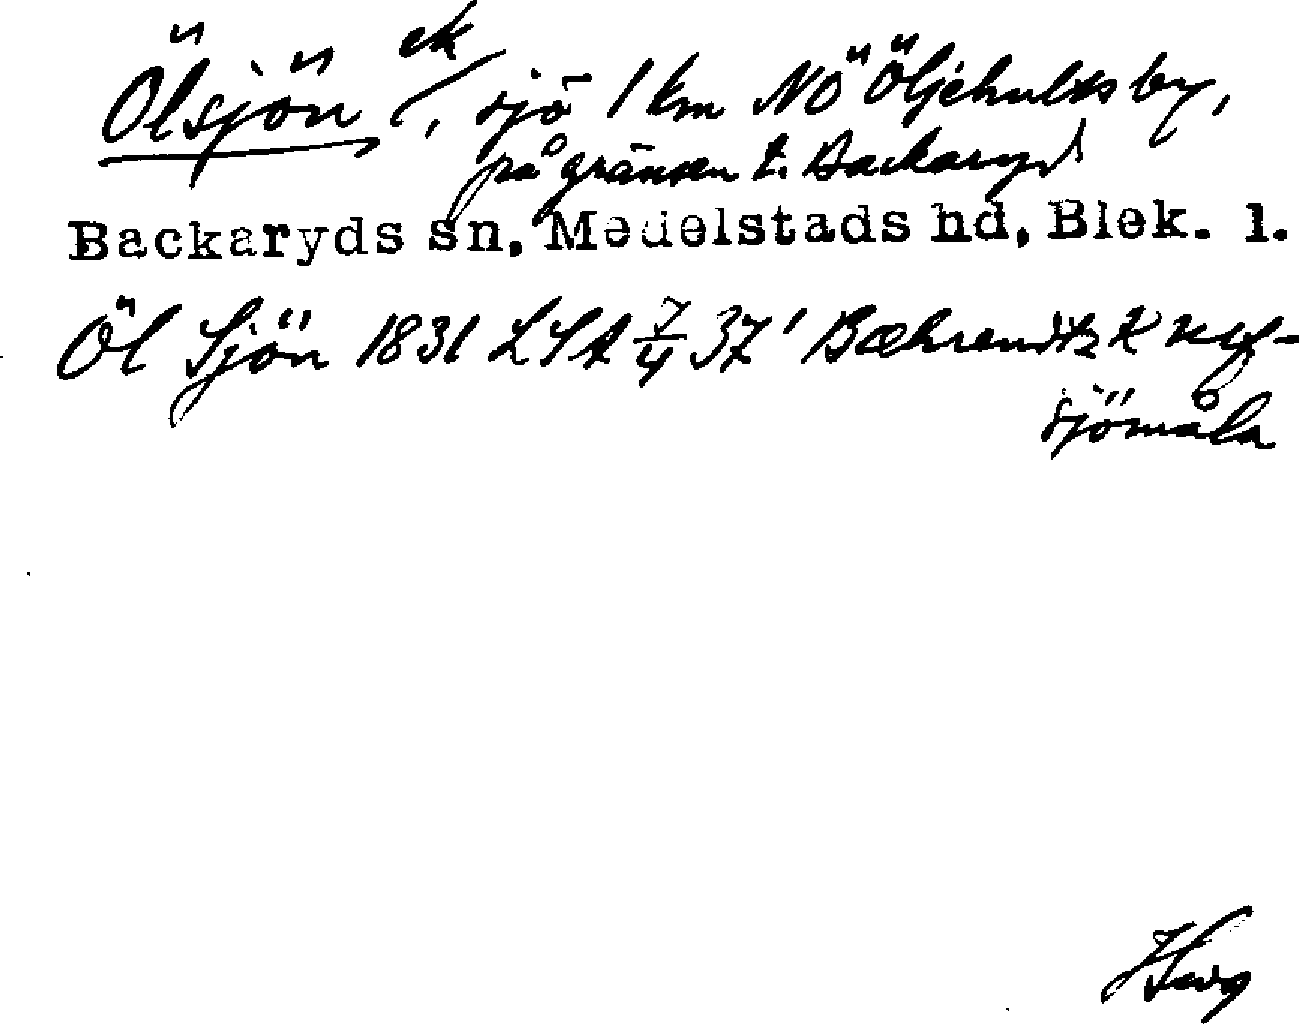 Ölsjön ek, sjö 1 km NÖ Öljehults by,
på gränsen t. Backaryd
Backaryds sn, Medelstads hd, Blek. l.
Öl Sjön 1831 LSA 7/4 37' Bæhrenditz K
sjömåla